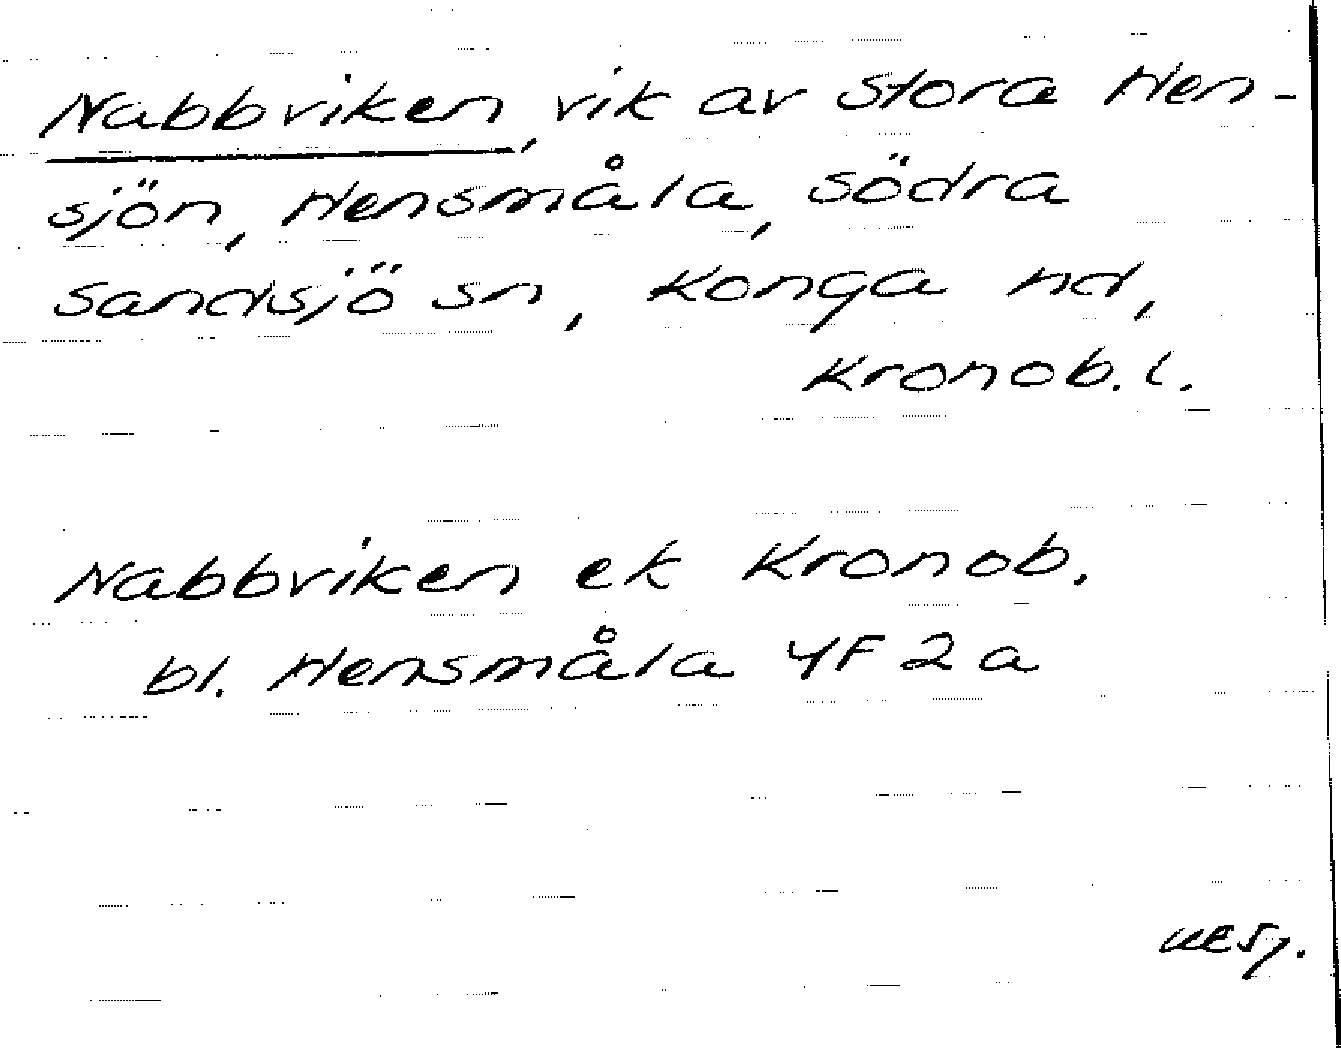 Nabbviken, vik av Stora Hen-
sjön, Hensmåla, Södra
Sandsjö sn, Konga hd,
Kronob. l.
Nabbviken ek Kronob.
bl. Hensmåla 4F 2a